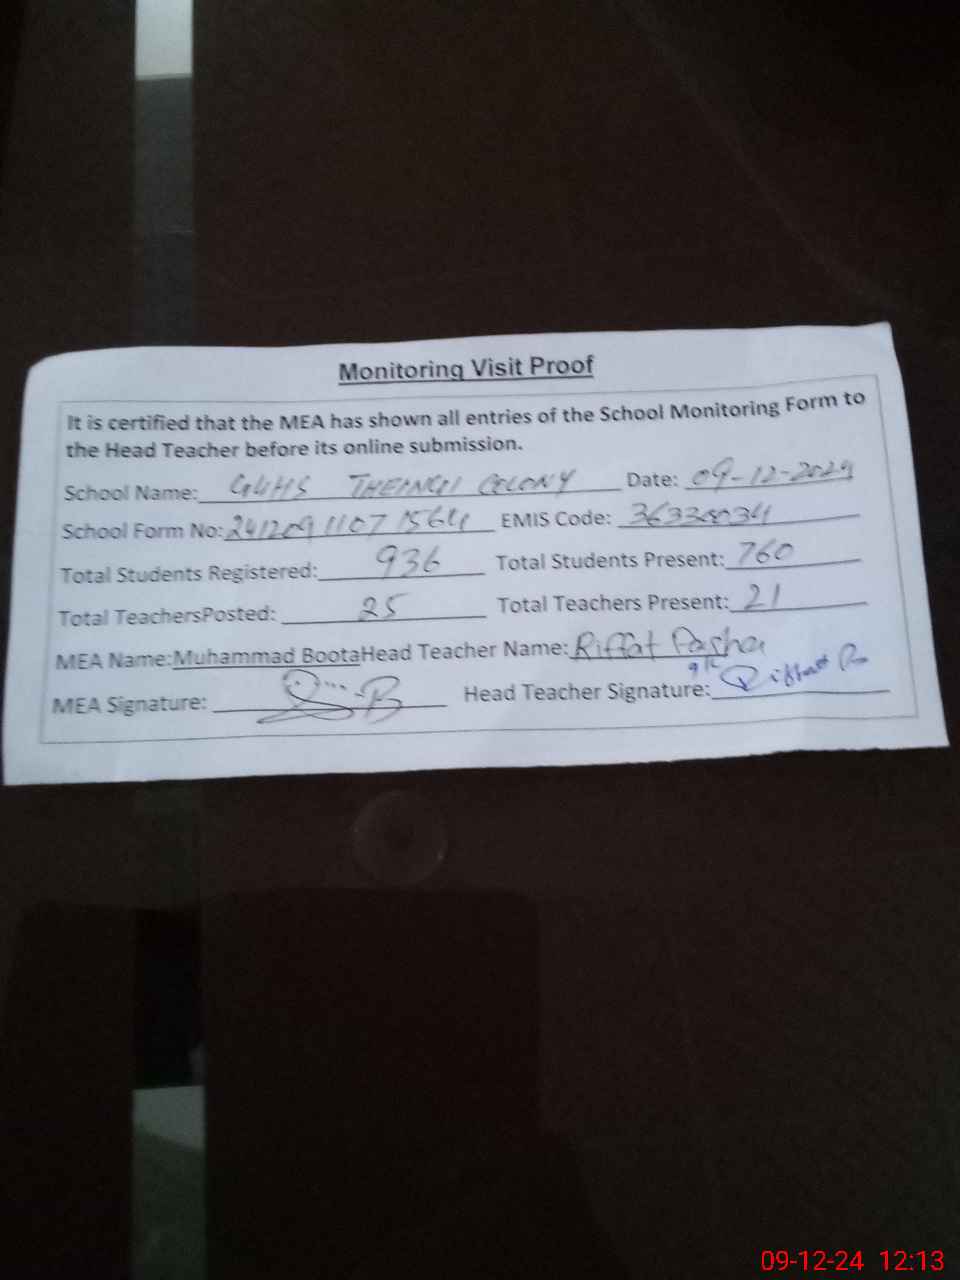 Monitoring Visit Proof
It is certified that the MEA has shown all entries of the School Monitoring Form to
the Head Teacher before its online submission.
School Name: GGHS THEINGI COLONY Date: 09-12-2024
School Form No: 24120911071564 EMIS Code:
Total Students Registered: 936 Total Students Present: 760
Total TeachersPosted: 25 Total Teachers Present: 21
MEA Name:Muhammad BootaHead Teacher Name: Riffat Pasha
MEA Signature: Head Teacher Signature: Riffat
09-12-24 12:13